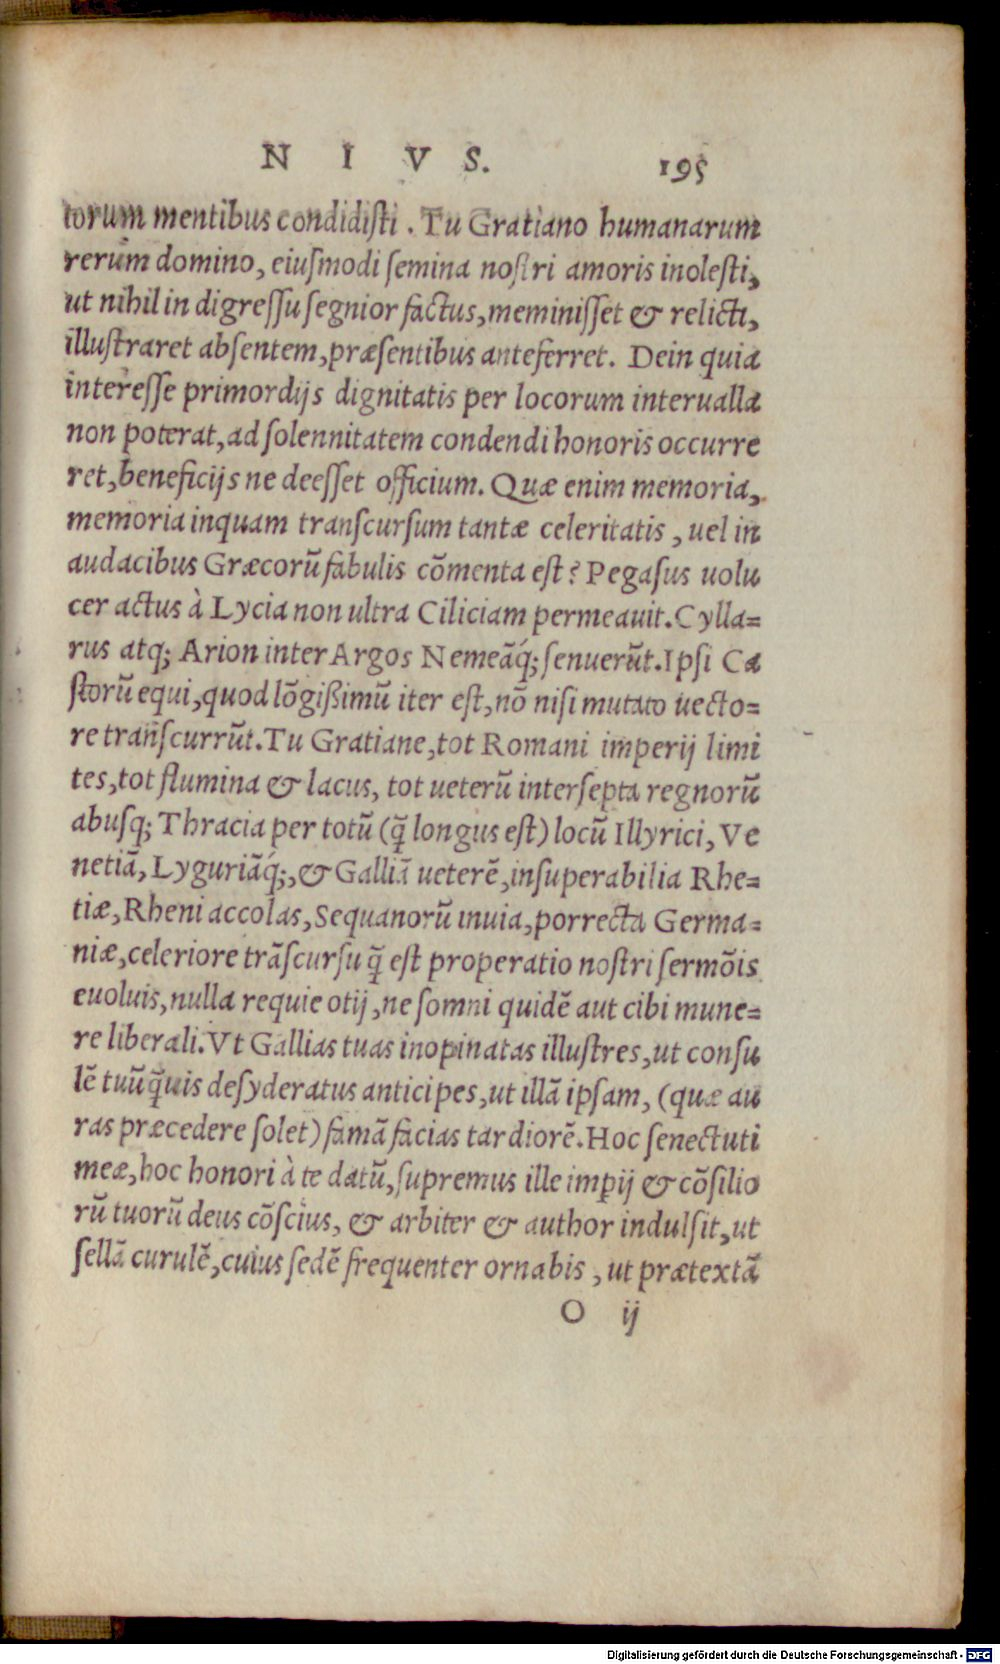 N I V S. 195
torum mentibus condidisti . Tu Gratiano humanarum
rerum domino, eiusmodi semina nostri amoris inolesti,
ut nihil in digressu segnior factus, meminisset & relicti,
illustraret absentem, præsentibus anteferret. Dein quia
interesse primordijs dignitatis per locorum interualla
non poterat, ad solennitatem condendi honoris occurre
ret, beneficijs ne deesset officium. Quæ enim memoria,
memoria inquam transcursum tantæ celeritatis , uel in
audacibus Græcorū fabulis cōmenta est? Pegasus uolu
cer actus à Lycia non ultra Ciliciam permeauit. Cylla=
rus atq; Arion inter Argos Nemeāq́; senuerūt. Ipsi Ca
storū equi, quod lōgißimū iter est, nō nisi mutato uecto=
re transcurrūt. Tu Gratiane, tot Romani imperij limi
tes, tot flumina & lacus, tot ueterū intersepta regnorū
abusq; Thracia per totū (q̄ longus est) locū Illyrici, Ve
netiā, Lyguriāq́;, & Galliā ueterē, insuperabilia Rhe=
tiæ, Rheni accolas, Sequanorū inuia, porrecta Germa=
niæ, celeriore trāscursu q̄ est properatio nostri sermōis
euoluis, nulla requie otij, ne somni quidē aut cibi mune=
re liberali. Vt Gallias tuas inopinatas illustres, ut consu
lē tuū q̄uis desyderatus anticipes, ut illā ipsam, (quæ au
ras præcedere solet) famā facias tardiorē. Hoc senectuti
meæ, hoc honori à te datū, supremus ille imp̱ij & cōsilio
rū tuorū deus cōscius, & arbiter & author indulsit, ut
sellā curulē, cuius sedē frequenter ornabis , ut prætextā
O ij
Digitalisierung gefördert durch die Deutsche Forschungsgemeinschaft - DFG